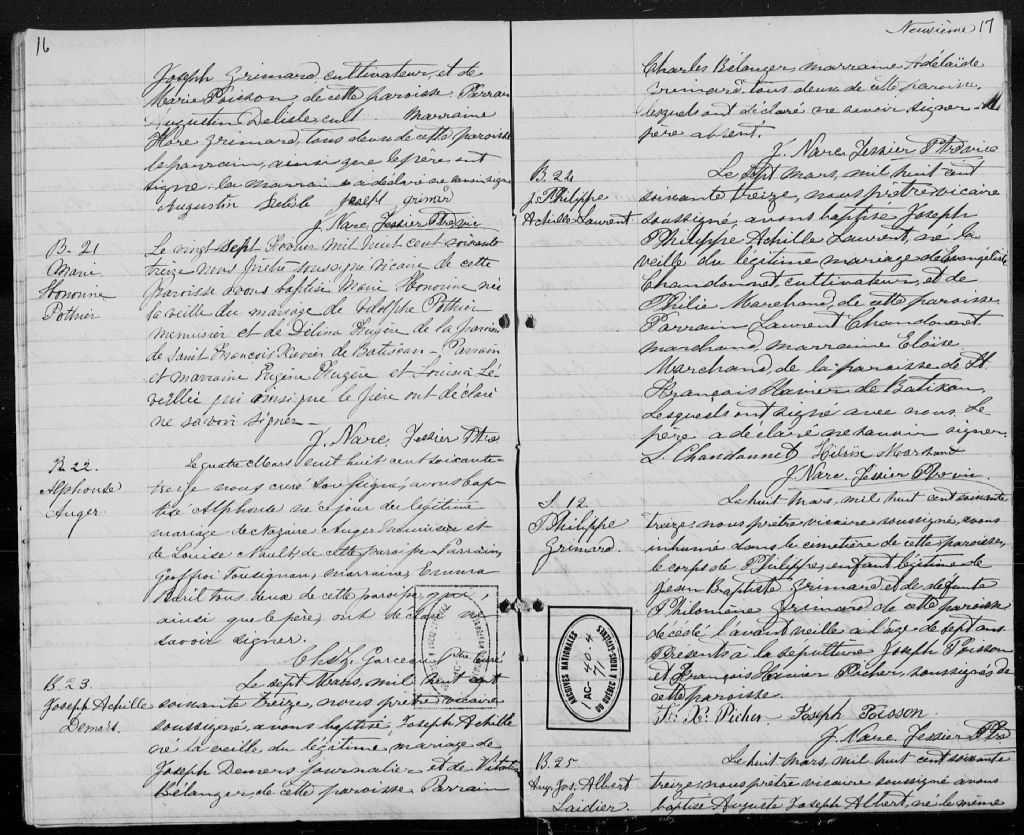 16
Joseph Grimard, cultivateur, et de
Marie Poisson, de cette paroisse. Parrain
Augustin Delisle cult Marraine
Flore Grimard, tous deux de cette paroisse
le parrain, ainsi que le père, ont
signé; la marraine a déclaré ne savoir signer
Augustin Delisle Joseph Grimard
J. Narc. Tessier Ptre vic
B. 21
Marie
Honorine
Pothier
Le vingt sept février mil huit cent soixante
treize nous prêtre soussigné vicaire de cette
paroisse avons baptisé Marie Honorine née
la veille du mariage de Adolphe Pothier
menuisier et de Délina Hugère de la paroisse
de Saint François Xavier de Batiscan – Parrain
et marraine Eugène Hugère et Louisia Lé
veillée qui ainsi que le père ont déclaré
ne savoir signer –
J. Narc. Tessier Ptre
B. 22.
Alphonse
Auger
Le quatre Mars mil huit cent soixante-
treize nous curé soussigné, avons bap-
tisé Alphonse né ce jour du légitime
mariage de Nazaire Auger menuisier et
de Louise Nault, de cette paroisse. Parrain,
Geoffroi Tousignan, marraine, Emma
Baril tous deux de cette paroisse, qui,
ainsi que le père, ont déclaré ne
savoir signer.
Chs Z. Garceau Ptre curé
B. 23
Joseph Achille
Demers
Le sept Mars, mil huit cent
soixante treize, nous prêtre vicaire
soussigné, avons baptisé, Joseph Achille
né la veille du légitime mariage de
Joseph Demers journalier et de
Bélanger, de cette paroisse Parrain
Neuvième 17
Charles Bélanger, marraine Adélaïde
Grimard, tous deux de cette paroisse,
lesquels ont déclaré ne savoir signer
père absent.
J. Narc. Tessier Ptre vic
B. 24
J. Philippe
Achille Laurent
Le sept Mars, mil huit cent
soixante treize, nous prêtre vicaire
soussigné, avons baptisé Joseph
Philippe Achille Laurent, né la
veille du légitime mariage de Evangéliste
Chandonnet, cultivateur, et de
Philie Marchand, de cette paroisse.
Parrain Laurent Chandonnet
marchand, marraine Eloïse
Marchand, de la paroisse de St.
François Xavier de Batiscan,
lesquels ont signé avec nous. Le
père a déclaré ne savoir signer.
L. Chandonnet Héloïse Marchand
J. Narc. Tessier Ptre vic
S. 12.
Philippe
Grimard.
Le huit Mars, mil huit cent soixante
treize, nous prêtre vicaire soussigné, avons
inhumé dans le cimetière de cette paroisse,
le corps de Philippe, enfant légitime de
Jean Baptiste Grimard et de défunte
Philomène Grimard de cette paroisse
décédé l'avant veille à l'âge de sept ans.
Présents à la sépulture Joseph Poisson
et François Xavier Picher, soussignés de
cette paroisse.
Frs Xr Picher Joseph Poisson.
J. Narc. Tessier Ptre
ARCHIVES NATIONALES
AC-40-4
71
DU QUÉBEC À TROIS-RIVIÈRES
B. 25
Aug. Jos. Albert
Laidier
Le huit Mars, mil huit cent soixante
treize, nous prêtre vicaire soussigné avons
baptisé Auguste Joseph Albert, né le même